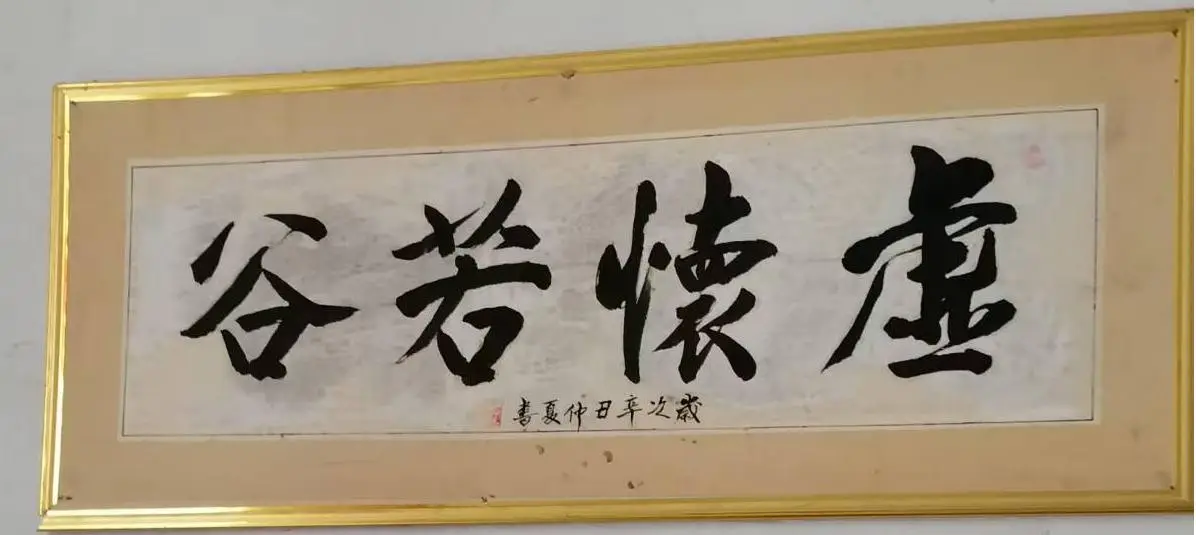 虚懷若谷
歲次辛丑仲夏書